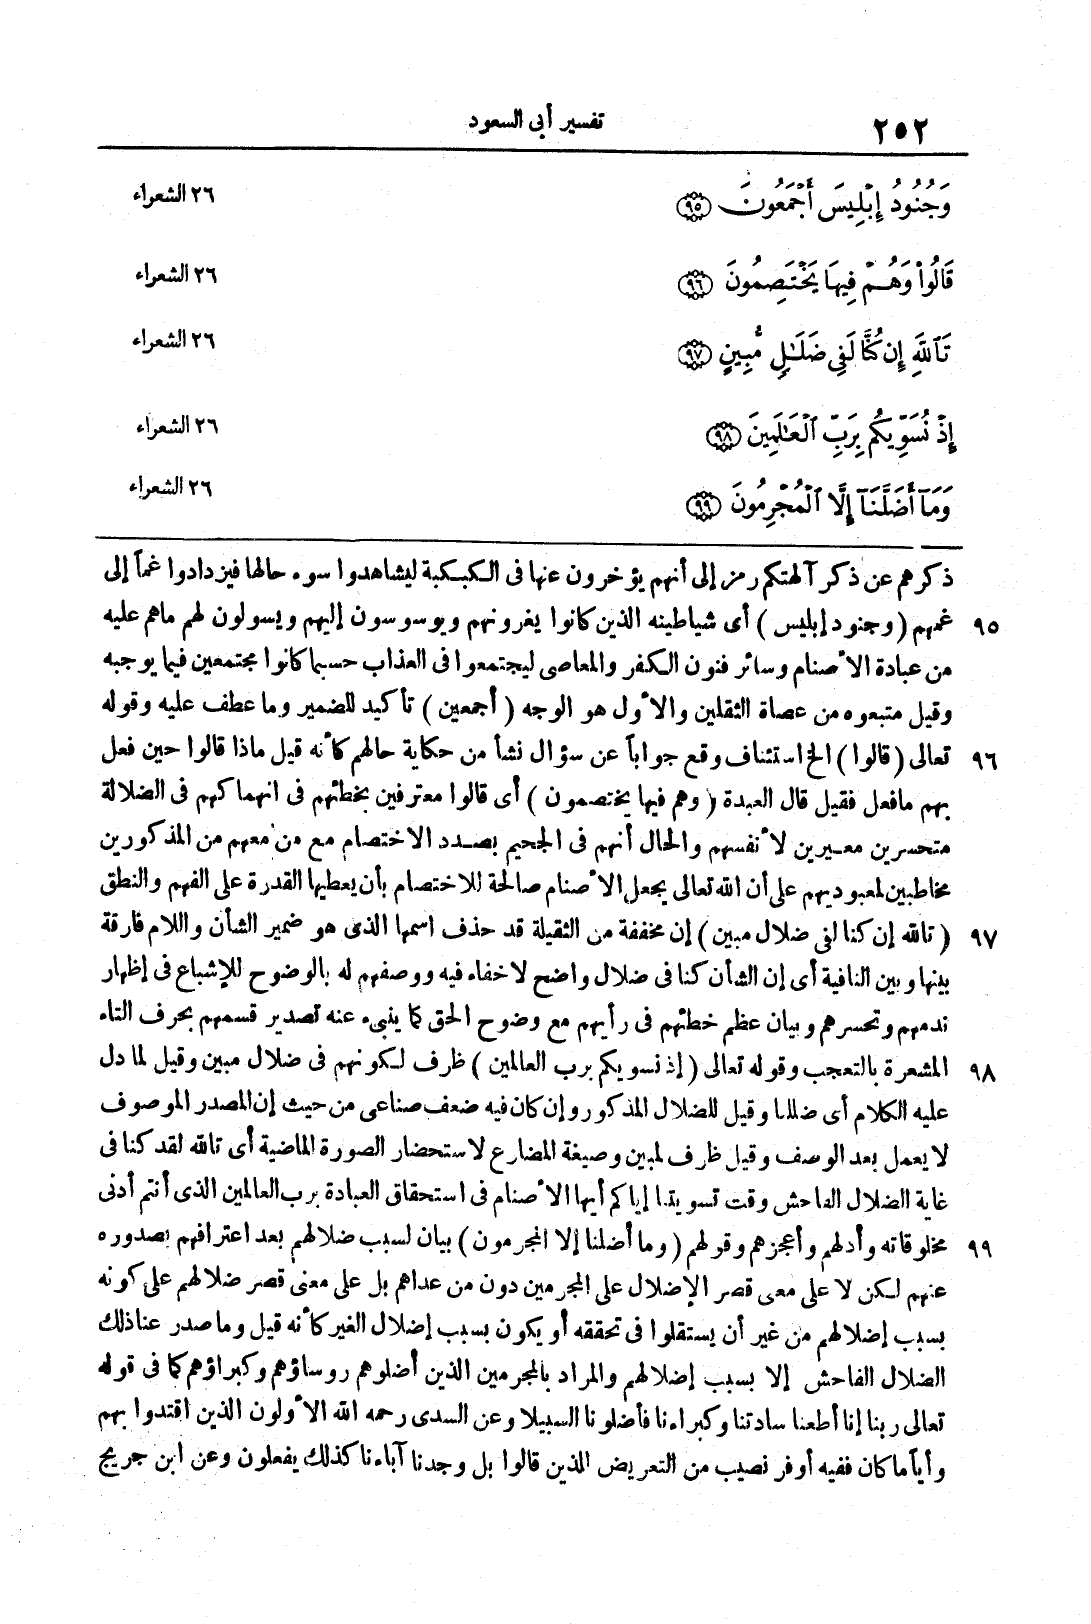 ٢٥٢ تفسير أبى السعود
وَجُنُودُ إِبْلِيسَ أَجْمَعُونَ ٩٥ ٢٦ الشعراء
قَالُواْ وَهُمْ فِيهَا يَخْتَصِمُونَ ٩٦ ٢٦ الشعراء
تَٱللَّهِ إِن كُنَّا لَفِى ضَلَٰلٍ مُّبِينٍ ٩٧ ٢٦ الشعراء
إِذْ نُسَوِّيكُم بِرَبِّ ٱلْعَٰلَمِينَ ٩٨ ٢٦ الشعراء
وَمَآ أَضَلَّنَآ إِلَّا ٱلْمُجْرِمُونَ ٩٩ ٢٦ الشعراء
ذكرهم عن ذكر آلهتكم رمز إلى أنهم يؤخرون عنها فى الكبكبة ليشاهدوا سوء حالها فيزدادوا غماً إلى
٩٥ غمهم (وجنود إبليس) أى شياطينه الذين كانوا يغرونهم ويوسوسون إليهم ويسولون لهم ماهم عليه
من عبادة الأصنام وسائر فنون الكفر والمعاصى ليجتمعوا فى العذاب حسبما كانوا مجتمعين فيما يوجبه
وقيل متبعوه من عصاة الثقلين والأول هو الوجه (أجمعين) تأكيد للضمير وما عطف عليه وقوله
٩٦ تعالى (قالوا) الخ استئناف وقع جواباً عن سؤال نشأ من حكاية حالهم كأنه قيل ماذا قالوا حين فعل
بهم مافعل فقيل قال العبدة (وهم فيها يختصمون) أى قالوا معترفين بخطئهم فى انهماكهم فى الضلالة
متحسرين معيرين لأنفسهم والحال أنهم فى الجحيم بصدد الاختصام مع من معهم من المذكورين
مخاطبين لمعبوديهم على أن الله تعالى يجعل الأصنام صالحة للاختصام بأن يعطيها القدرة على الفهم والنطق
٩٧ (تالله إن كنا لفى ضلال مبين) إن مخففة من الثقيلة قد حذف اسمها الذى هو ضمير الشأن واللام فارقة
بينها وبين النافية أى إن الشأن كنا فى ضلال واضح لاخفاء فيه ووصفهم له بالوضوح للإشباع فى إظهار
ندمهم وتحسرهم وبيان عظم خطئهم فى رأيهم مع وضوح الحق كما ينبىء عنه تصدير قسمهم بحرف التاء
٩٨ المشعرة بالتعجب وقوله تعالى (إذ نسويكم برب العالمين) ظرف لكونهم فى ضلال مبين وقيل لما دل
عليه الكلام أى ضللنا وقيل للضلال المذكور وإن كان فيه ضعف صناعى من حيث إن المصدر الموصوف
لا يعمل بعد الوصف وقيل ظرف لمبين وصيغة المضارع لاستحضار الصورة الماضية أى تالله لقد كنا فى
غاية الضلال الفاحش وقت تسويتنا إياكم أيها الأصنام فى استحقاق العبادة برب العالمين الذى أنتم أدنى
٩٩ مخلوقاته وأدلهم وأعجزهم وقولهم (وما أضلنا إلا المجرمون) بيان لسبب ضلالهم بعد اعترافهم بصدوره
عنهم لكن لا على معى قصر الإضلال على المجرمين دون من عداهم بل على معنى قصر ضلالهم على كونه
بسبب إضلالهم من غير أن يستقلوا فى تحققه أو يكون بسبب إضلال الغير كأنه قيل وما صدر عنا ذلك
الضلال الفاحش إلا بسبب إضلالهم والمراد بالمجرمين الذين أضلوهم روساؤهم وكبراؤهم كما فى قوله
تعالى ربنا إنا أطعنا سادتنا وكبراءنا فأضلونا السبيلا وعن السدى رحمه الله الأولون الذين اقتدوا بهم
وأياً ما كان ففيه أوفر نصيب من التعريض للذين قالوا بل وجدنا آباءنا كذلك يفعلون وعن ابن جريج